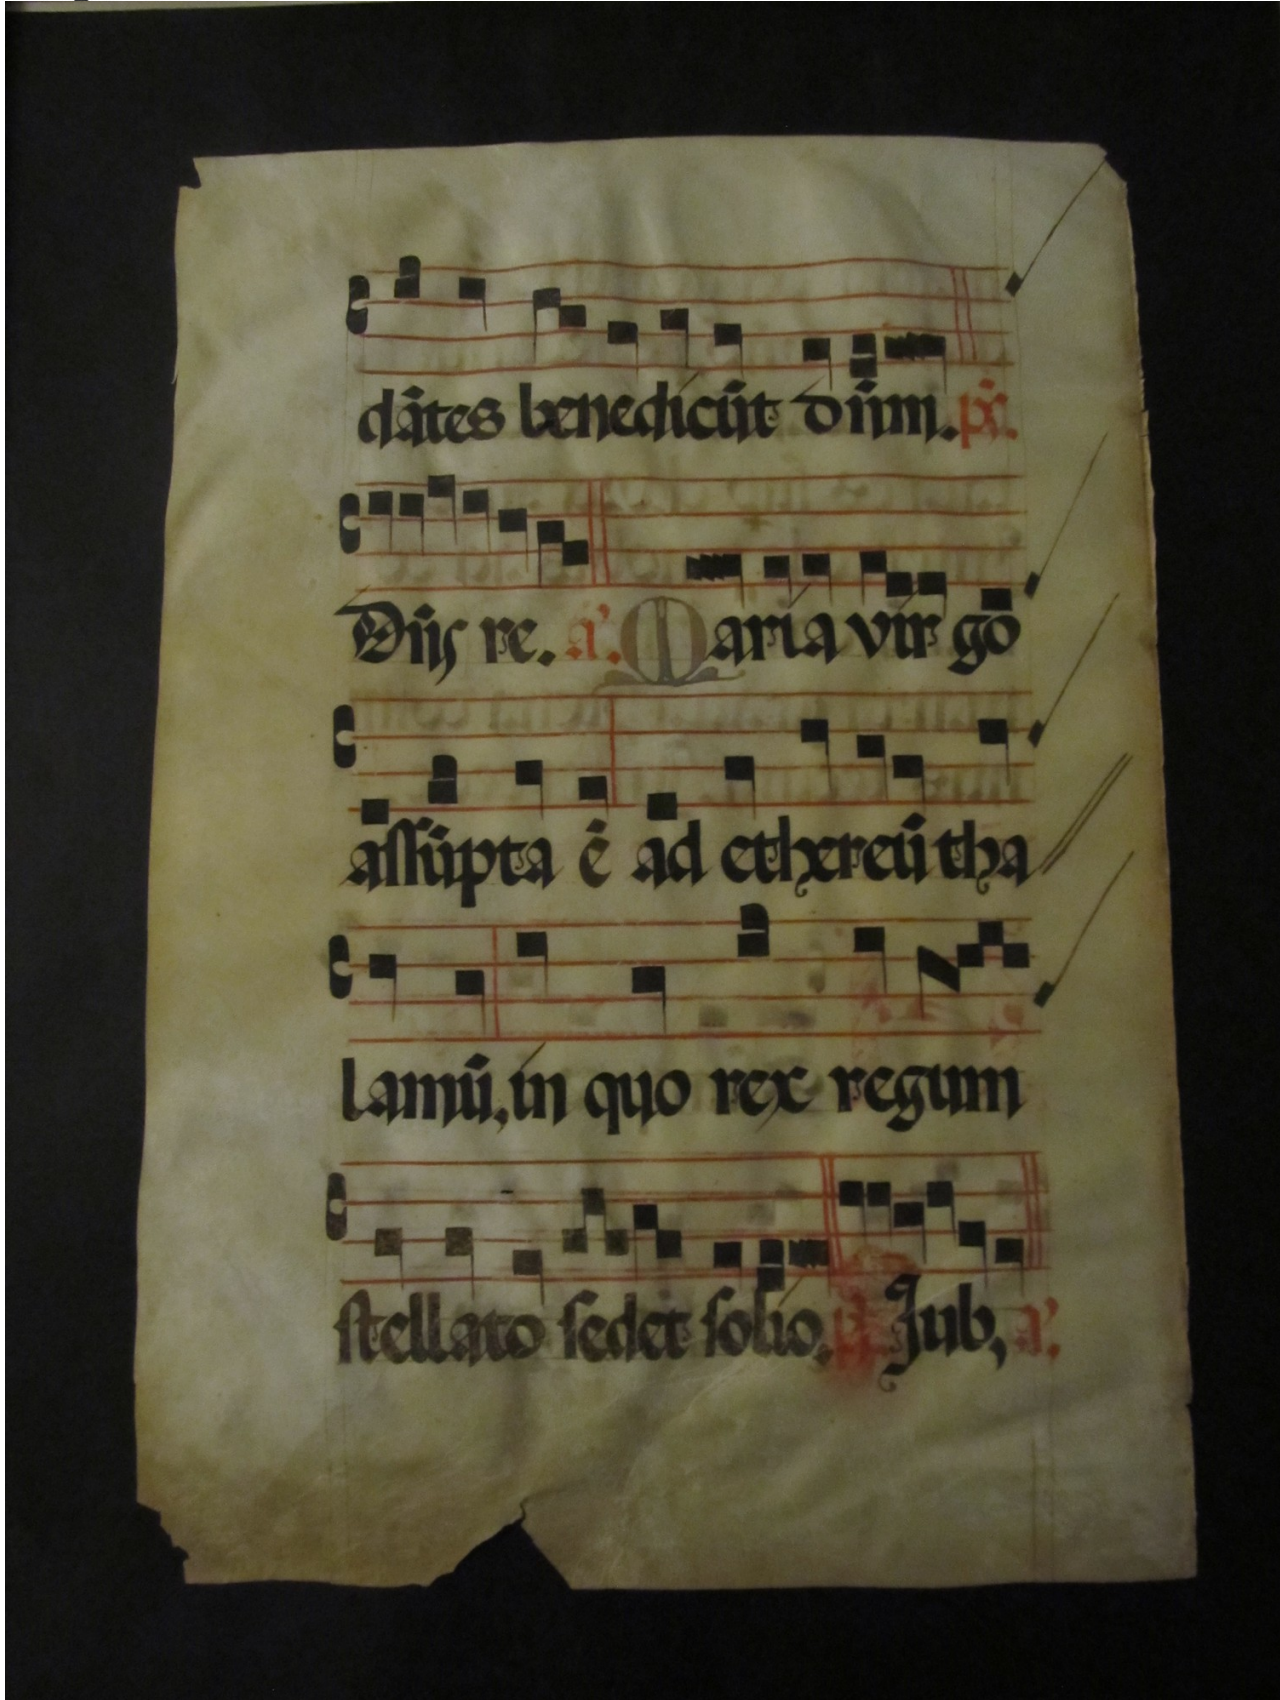 dātes benedicūt dnm̄. ps̄.
Dñs re. a'. Maria virgo
assūpta ē ad ethereū tha
lamū, in quo rex regum
stellato sedet solio. ps̄. Jub, a'.